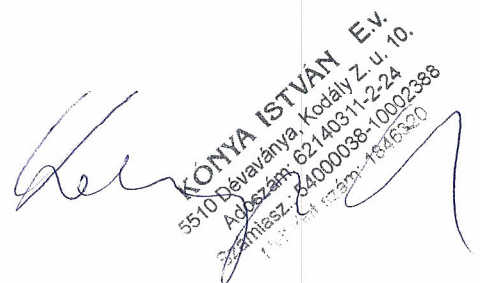 KÓNYA ISTVÁN E.V.
5510 Dévaványa, Kodály Z. u. 10.
Adószám: 62140311-2-24
Számlasz.: 54000038-10002388
szám: 1846320